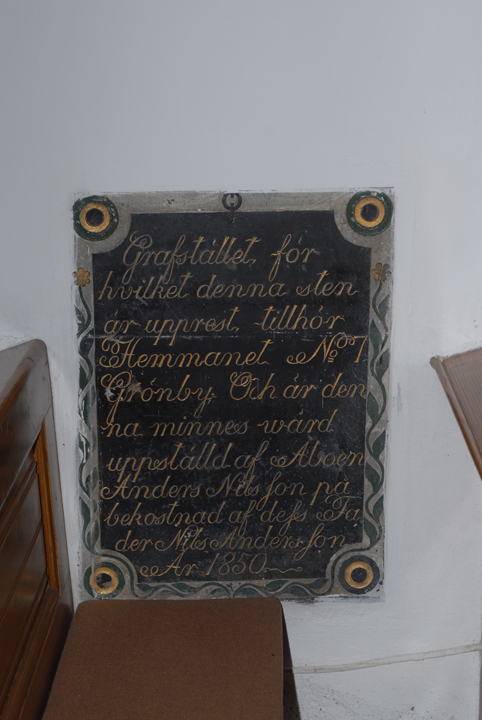 Grafstället, för
hvilket denna sten
är upprest, tillhör
Hemmanet No 7
Grönby. Och är den
na minnes wård
uppställd af Åboen
Anders Nils son på
bekostnad af dess Fa
der Nils Anders son
År 1830